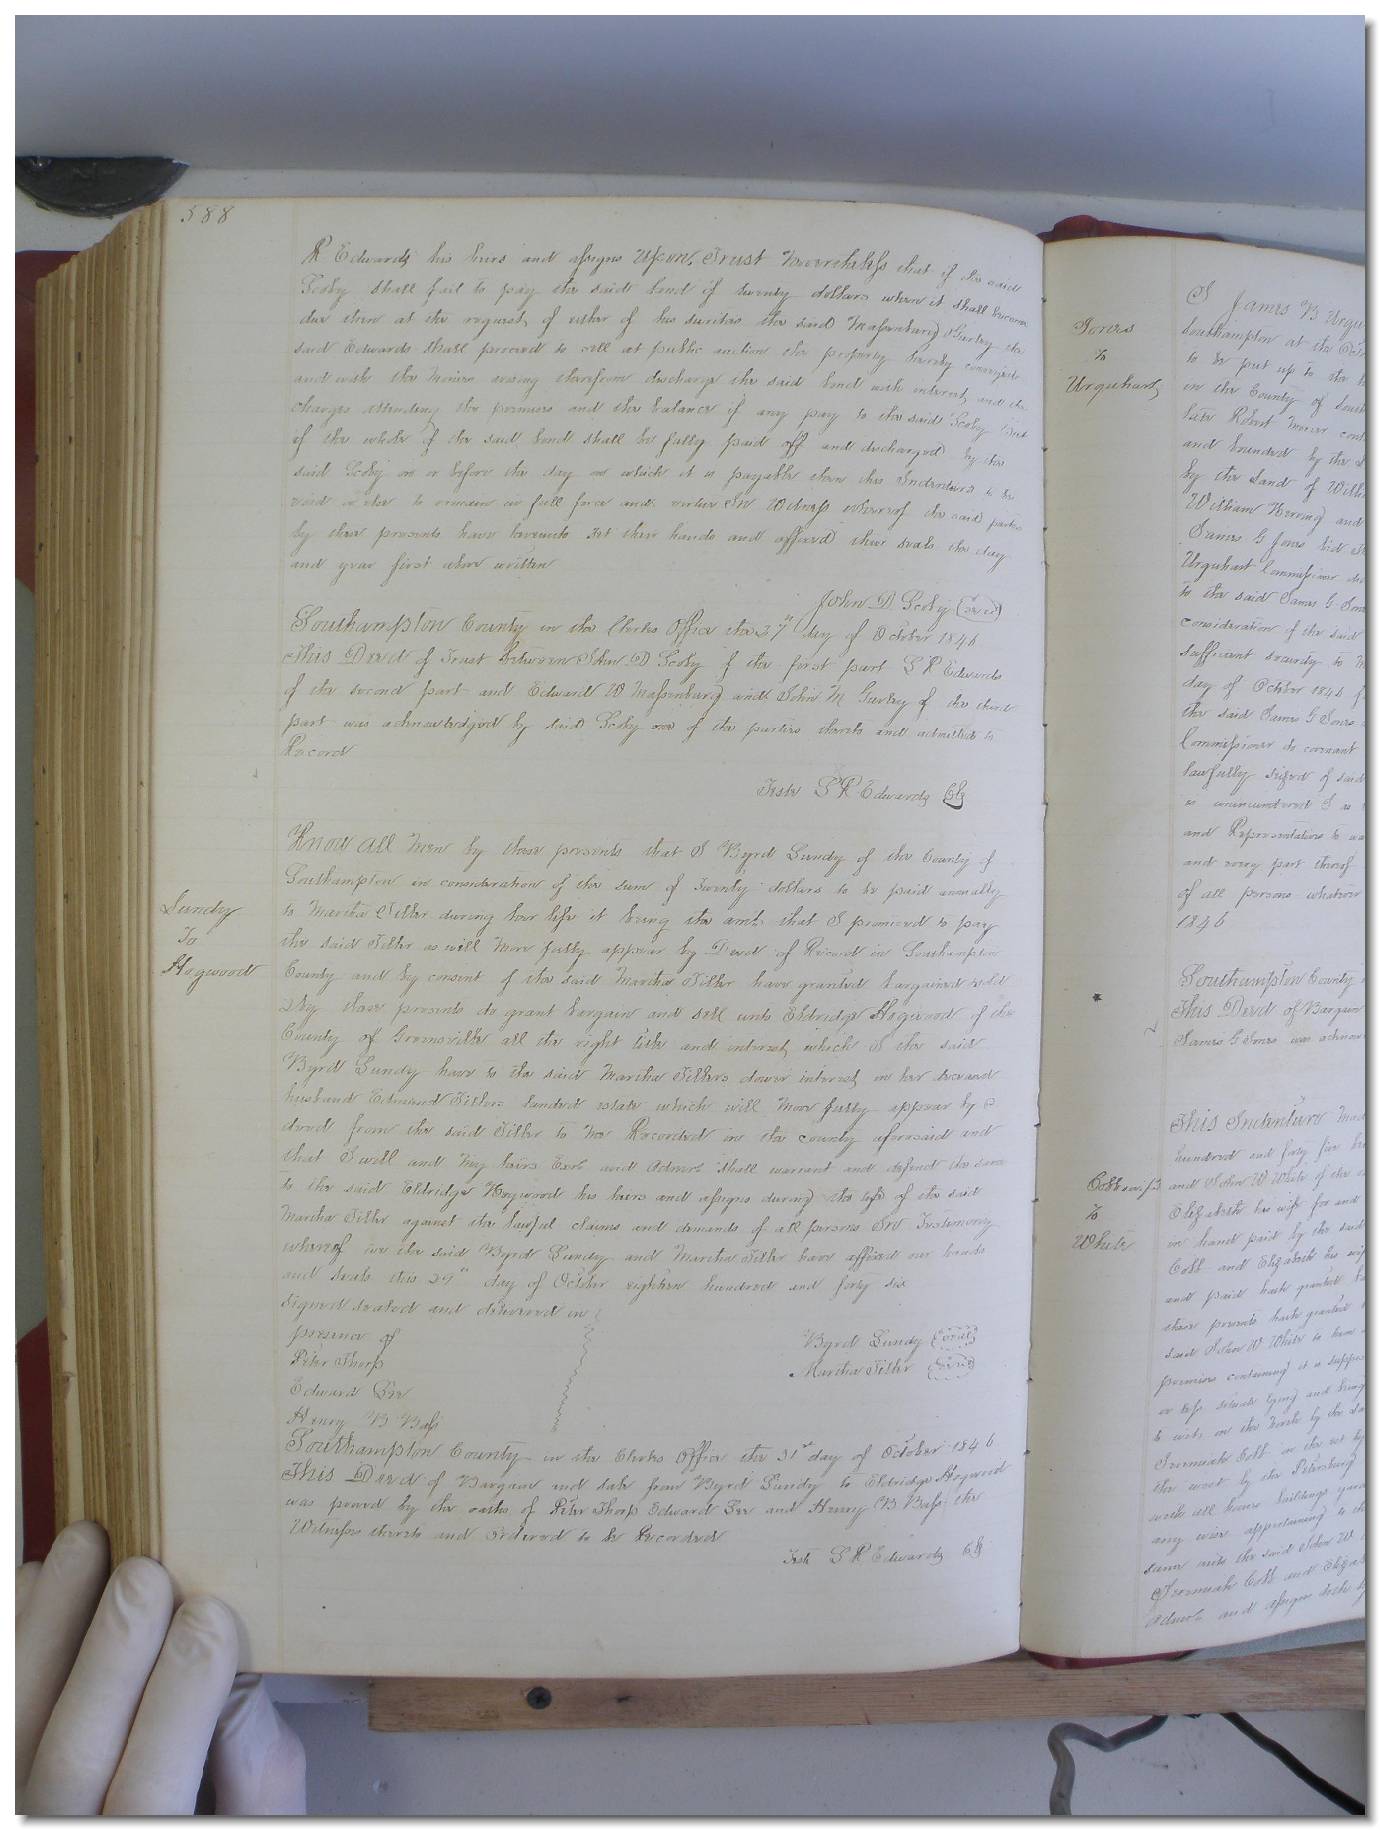 588
R Edwards his heirs and assigns Upon Trust Nevertheless that if the said
Scoby shall fail to pay the said bond of twenty dollars when it shall become
due then at the request of either of his sureties the said Massenburg & Gurley the
said Edwards shall proceed to sell at public auction the property hereby conveyed
and with the monies arising therefrom discharge the said bond with interest and the
charges attending the premises and the balance if any pay to the said Scoby But
if the whole of the said bond shall be fully paid off and discharged by the
said Scoby on or before the day on which it is payable then this Indenture to be
void or else to remain in full force and virtue In Witness whereof the said parties
by these presents have hereunto set their hands and affixed their seals the day
and year first above written
John D Scoby (seal)
Southampton County in the Clerks Office the 27th day of October 1846
This Deed of Trust between John D Scoby of the first part L R Edwards
of the second part and Edward W Massenburg and John M Gurley of the third
part was acknowledged by said Scoby one of the parties thereto and admitted to
Record
Teste L R Edwards Clk
Lundy
To
Hogwood
Know all Men by these presents that I Byrd Lundy of the County of
Southampton in consideration of the sum of Twenty dollars to be paid annually
to Martha Tiller during her life it being the amt. that I promised to pay
the said Tiller as will more fully appear by Deed of Record in Southampton
County and by consent of the said Martha Tiller have granted bargained sold
& by these presents do grant bargain and sell unto Eldridge Hogwood of the
County of Greensville all the right title and interest which I the said
Byrd Lundy have to the said Martha Tillers dower interest in her deceased
husband Edmund Tillers landed estate which will more fully appear by a
deed from the said Tiller to me Recorded in the county aforesaid and
that I will and my heirs Exrs and Admrs shall warrant and defend the same
to the said Eldridge Hogwood his heirs and assigns during the life of the said
Martha Tiller against the lawful claims and demands of all persons In Testimony
whereof we the said Byrd Lundy and Martha Tiller have affixed our hands
and seals this 29th day of October eighteen hundred and forty six
Signed sealed and delivered in
presence of
Peter Thorp
Edward Lee
Henry B Bass
Byrd Lundy (seal)
Martha Tiller (seal)
Southampton County in the Clerks Office the 31st day of October 1846
This Deed of Bargain and sale from Byrd Lundy to Eldridge Hogwood
was proved by the oaths of Peter Thorp Edward Lee and Henry B Bass the
Witnesses thereto and ordered to be Recorded
Teste L R Edwards Clk
Jones
To
Urquhart
I James B Urqu
Southampton at the Octo
to be put up to the
in the County of South
late Robert
and bounded by the
by the Land of Will
William Herring and
James G Jones
Urquhart Commissioner
to the said James G Jones
consideration of the said
sufficient security to
day of October 1846
the said James G Jones
Commissioner do covenant
lawfully seized of said
is unincumbered
and Representatives to
and every part thereof
of all persons whatever
1846
Southampton County
This Deed of Bargain
James G Jones was acknow
Cobb
To
White
This Indenture Mad
hundred and forty five
and John W White of the
Elizabeth his wife for and
in hand paid by the said
Cobb and Elizabeth his wife
and paid hath granted
these presents hath granted
said John W White to him
premises containing
or less
to wit, on the North by the
Jeremiah Cobb
the west by the Petersburg
with all houses buildings
any wise appertaining to the
same unto the said John W
Jeremiah Cobb and Elizab
Admrs and assigns